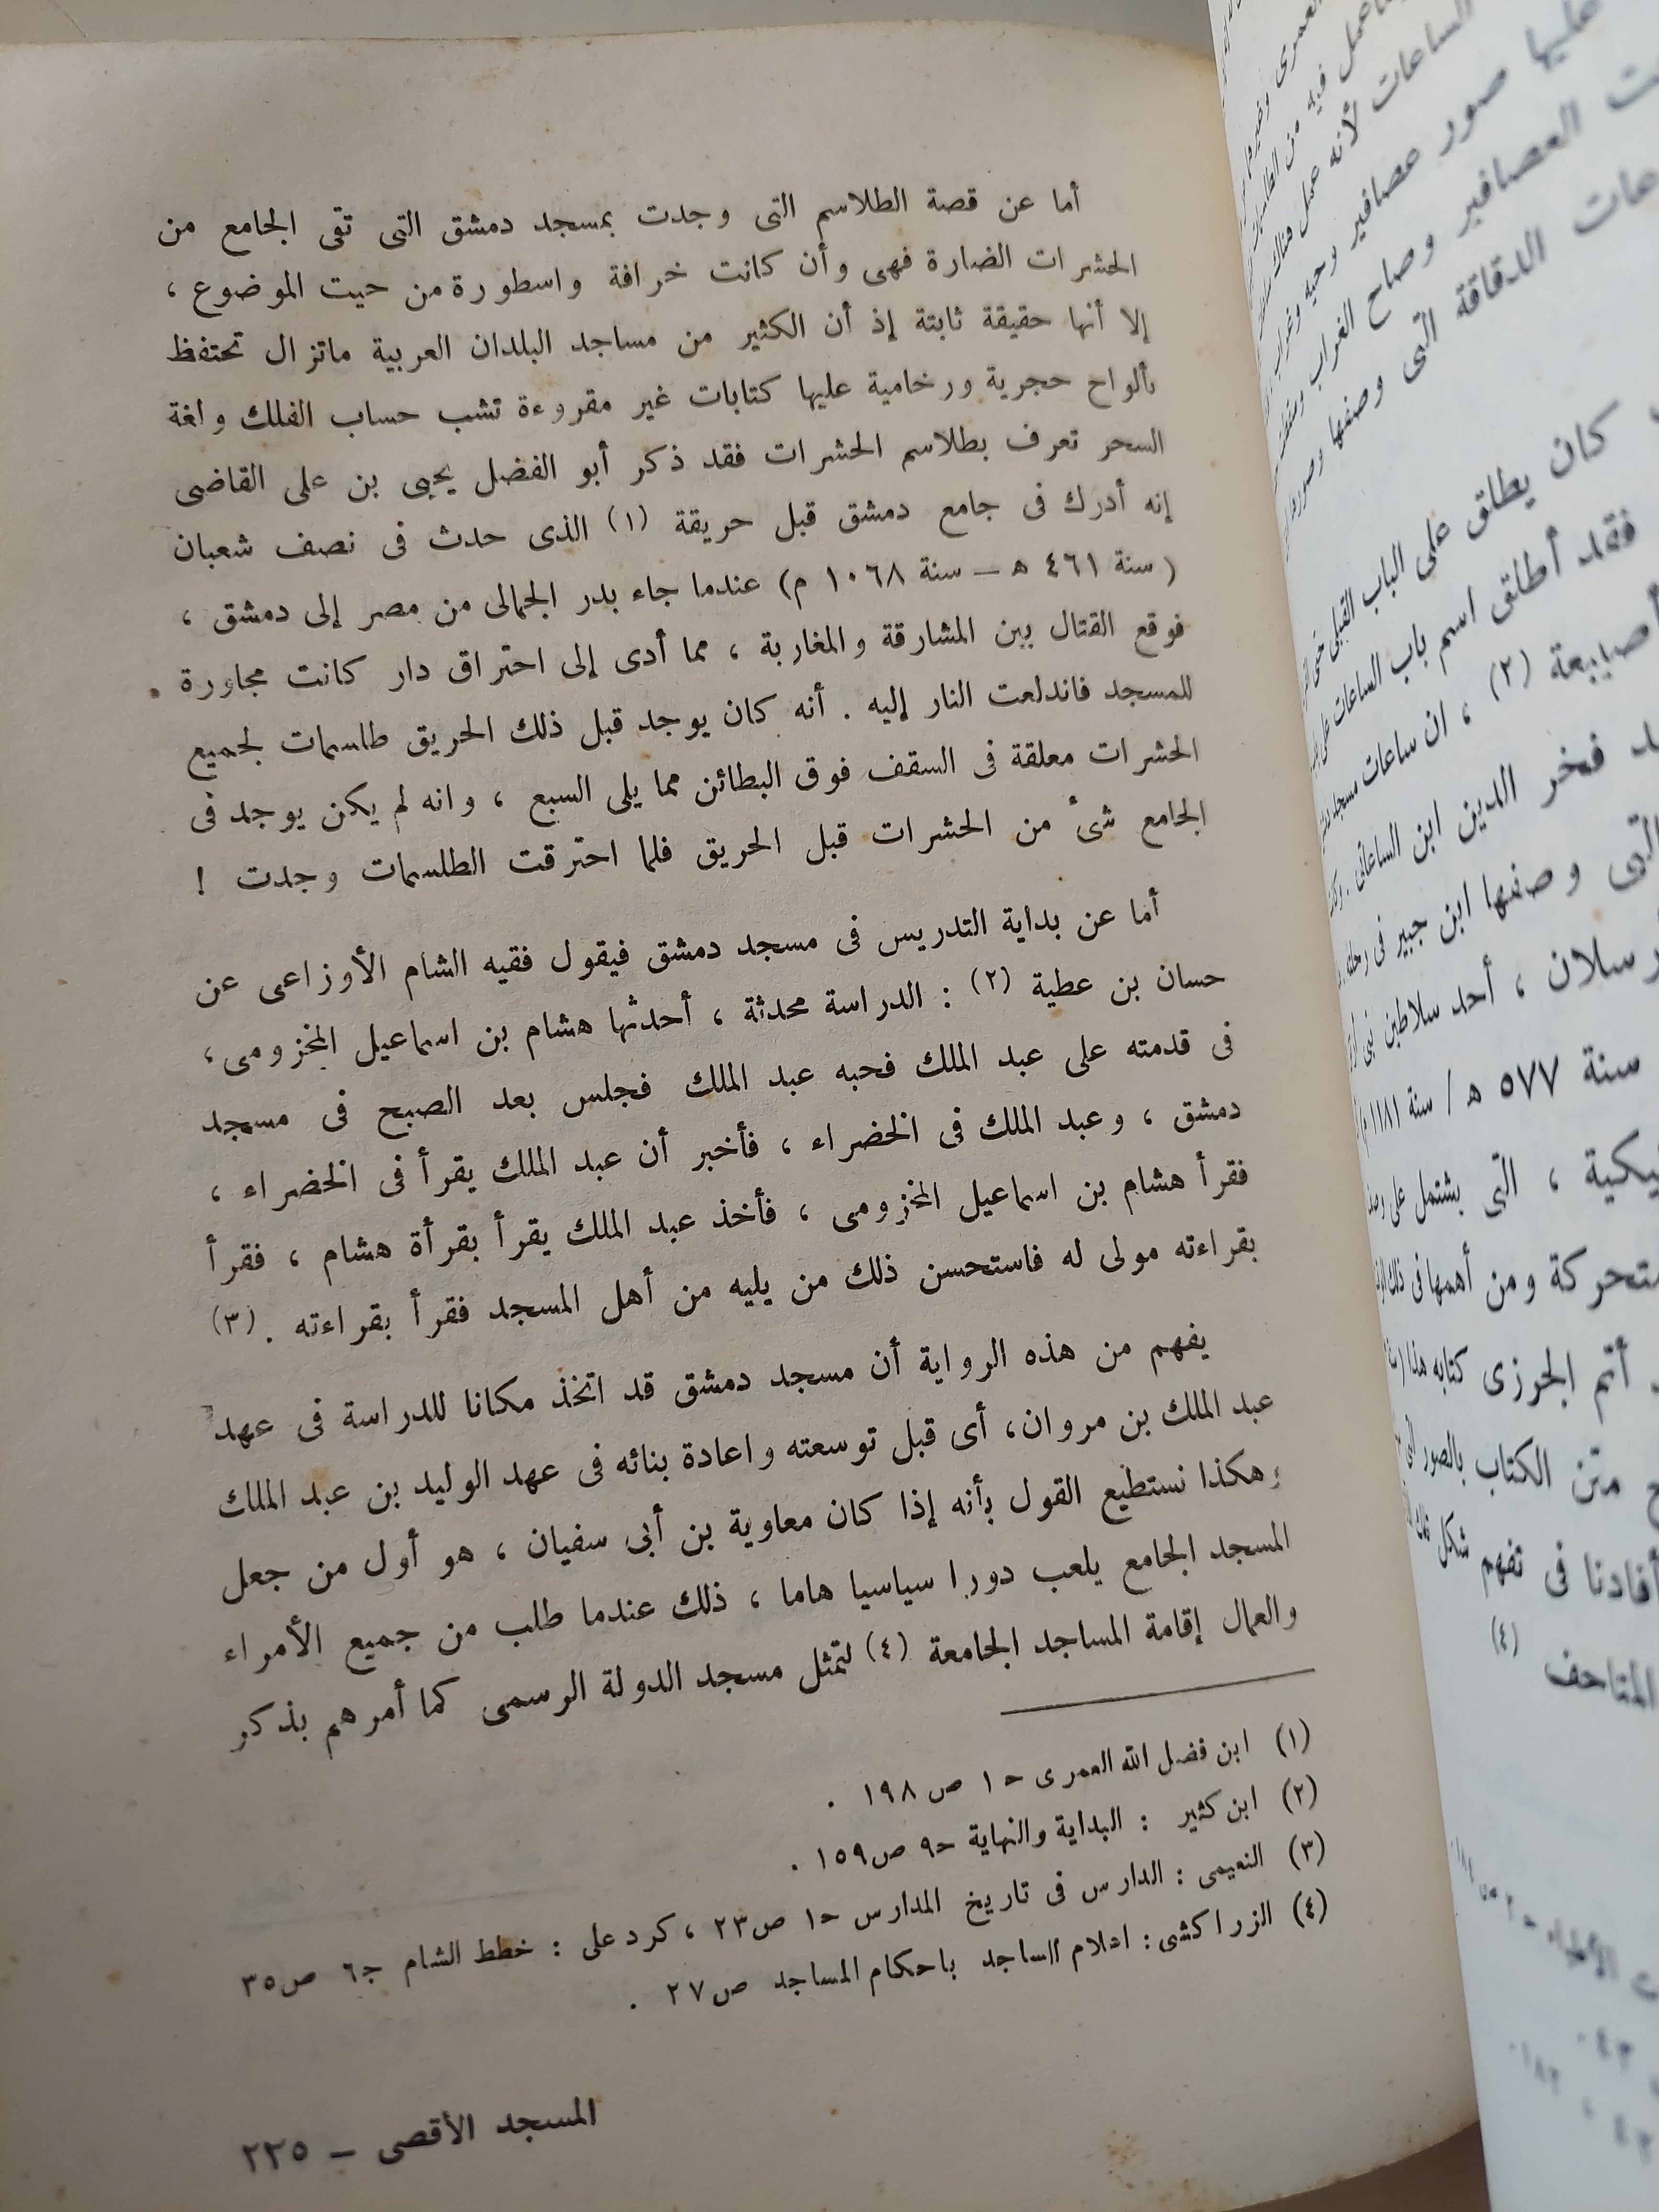 أما عن قصة الطلاسم التى وجدت بمسجد دمشق التى تقى الجامع من
الحشرات الضارة فهى وأن كانت خرافة واسطورة من حيت الموضوع ،
إلا أنها حقيقة ثابتة إذ أن الكثير من مساجد البلدان العربية ماتزال تحتفظ
بألواح حجرية ورخامية عليها كتابات غير مقروءة تشب حساب الفلك ولغة
السحر تعرف بطلاسم الحشرات فقد ذكر أبو الفضل يحيى بن على القاضى
إنه أدرك فى جامع دمشق قبل حريقة (١) الذى حدث فى نصف شعبان
(سنة ٤٦١ ه — سنة ١٠٦٨ م) عندما جاء بدر الجمالى من مصر إلى دمشق ،
فوقع القتال بين المشارقة والمغاربة ، مما أدى إلى احتراق دار كانت مجاورة
للمسجد فاندلعت النار إليه . أنه كان يوجد قبل ذلك الحريق طلسمات لجميع
الحشرات معلقة فى السقف فوق البطائن مما يلى السبع ، وانه لم يكن يوجد فى
الجامع شئ من الحشرات قبل الحريق فلما احترقت الطلسمات وجدت !
أما عن بداية التدريس فى مسجد دمشق فيقول فقيه الشام الأوزاعى عن
حسان بن عطية (٢) : الدراسة محدثة ، أحدثها هشام بن اسماعيل المخزومى ،
فى قدمته على عبد الملك فحبه عبد الملك فجلس بعد الصبح فى مسجد
دمشق ، وعبد الملك فى الخضراء ، فأخبر أن عبد الملك يقرأ فى الخضراء ،
فقرأ هشام بن اسماعيل المخزومى ، فأخذ عبد الملك يقرأ بقرأة هشام ، فقرأ
بقراءته مولى له فاستحسن ذلك من يليه من أهل المسجد فقرأ بقراءته . (٣)
يفهم من هذه الرواية أن مسجد دمشق قد اتخذ مكانا للدراسة فى عهد
عبد الملك بن مروان، أى قبل توسعته واعادة بنائه فى عهد الوليد بن عبد الملك
وهكذا نستطيع القول بأنه إذا كان معاوية بن أبى سفيان ، هو أول من جعل
المسجد الجامع يلعب دورا سياسيا هاما ، ذلك عندما طلب من جميع الأمراء
والعمال إقامة المساجد الجامعة (٤) لتمثل مسجد الدولة الرسمى كما أمرهم بذكر
(١) ابن فضل الله العمرى ح ١ ص ١٩٨ .
(٢) ابن كثير : البداية والنهاية ح٩ ص١٥٩ .
(٣) النعيمى : الدارس فى تاريخ المدارس ح١ ص٢٣ ، كرد على : خطط الشام ج٦ ص٣٥
(٤) الزراكشى : اعلام الساجد باحكام المساجد ص٢٧ .
المسجد الأقصى — ٢٢٥
عليها صور عصافير وحية وغراب
العصافير وصاح الغراب
الدقاقة التى وصفها وصورها
كان يطلق على الباب القبلى
فقد أطلق اسم باب الساعات على
أصيبعة (٢) ، ان ساعات مسجد
فخر الدين ابن الساعاتى
التى وصفها ابن جبير فى
أحد سلاطين بنى
سنة ٥٧٧ ه / سنة ١١٨١ م
التى يشتمل على
ومن أهمها فى ذلك
أتم الجزرى كتابه هذا
متن الكتاب بالصور
أفادنا فى تفهم شكل
المتاحف (٤)